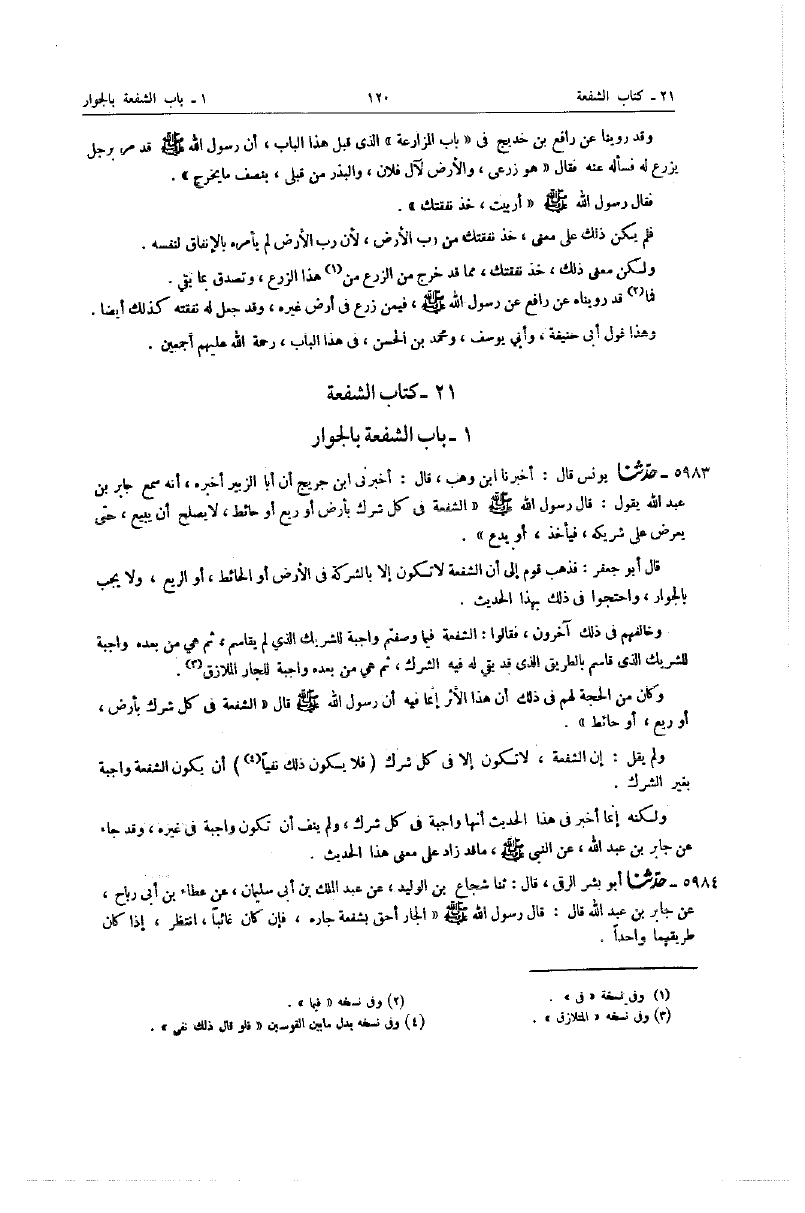 ٢١ ـ كتاب الشفعة ١٢٠ ١ ـ باب الشفعة بالجوار
وقد روينا عن رافع بن خديج فى « باب المزارعة » الذى قبل هذا الباب ، أن رسول الله ﷺ قد مر برجل
يزرع له فسأله عنه فقال « هو زرعى ، والأرض لآل فلان ، والبذر من قبلى ، بنصف مايخرج » .
فقال رسول الله ﷺ « أربيت ، خذ نفقتك » .
فلم يكن ذلك على معنى ، خذ نفقتك من رب الأرض ، لأن رب الأرض لم يأمره بالإنفاق لنفسه .
ولكن معنى ذلك ، خذ نفقتك ، مما قد خرج من الزرع من(١) هذا الزرع ، وتصدق بما بقي .
فما(٢) قد رويناه عن رافع عن رسول الله ﷺ ، فيمن زرع فى أرض غيره ، وقد جعل له نفقته كذلك أيضا .
وهذا قول أبى حنيفة ، وأبي يوسف ، ومحمد بن الحسن ، فى هذا الباب ، رحمة الله عليهم أجمعين .
٢١ ـ كتاب الشفعة
١ ـ باب الشفعة بالجوار
٥٩٨٣ ـ حدثنا يونس قال : أخبرنا ابن وهب ، قال : أخبرنى ابن جريج أن أبا الزبير أخبره ، أنه سمع جابر بن
عبد الله يقول : قال رسول الله ﷺ « الشفعة فى كل شرك بأرض أو ربع أو حائط ، لايصلح أن يبيع ، حتى
يعرض على شريكه ، فيأخذ ، أو يدع » .
قال أبو جعفر : فذهب قوم إلى أن الشفعة لاتكون إلا بالشركة فى الأرض أو الحائط ، أو الربع ، ولا يجب
بالجوار ، واحتجوا فى ذلك بهذا الحديث .
وخالفهم فى ذلك آخرون ، فقالوا : الشفعة فيما وصفتم واجبة للشريك الذي لم يقاسم ، ثم هي من بعده واجبة
للشريك الذى قاسم بالطريق الذى قد بقي له فيه الشرك ، ثم هي من بعده واجبة للجار الملازق(٣) .
وكان من الحجة لهم فى ذلك أن هذا الأثر إنما فيه أن رسول الله ﷺ قال « الشفعة فى كل شرك بأرض ،
أو ربع ، أو حائط » .
ولم يقل : إن الشفعة ، لاتكون إلا فى كل شرك ( فلا يكون ذلك نفياً(٤) ) أن يكون الشفعة واجبة
بغير الشرك .
ولكنه إنما أخبر فى هذا الحديث أنها واجبة فى كل شرك ، ولم ينف أن تكون واجبة فى غيره ، وقد جاء
عن جابر بن عبد الله ، عن النبي ﷺ ، ماقد زاد على معنى هذا الحديث .
٥٩٨٤ ـ حدثنا أبو بشر الرق ، قال : ثنا شجاع بن الوليد ، عن عبد الملك بن أبى سليمان ، عن عطاء بن أبى رباح ،
عن جابر بن عبد الله قال : قال رسول الله ﷺ « الجار أحق بشفعة جاره ، فإن كان غائباً ، انتظر ، إذا كان
طريقهما واحداً .
(١) وفى نسخة « فى » . (٢) وفى نسخه « فيما » .
(٣) وفى نسخه « المتلازق » . (٤) وفى نسخه بدل مابين القوسين « فلو قال ذلك نفى » .